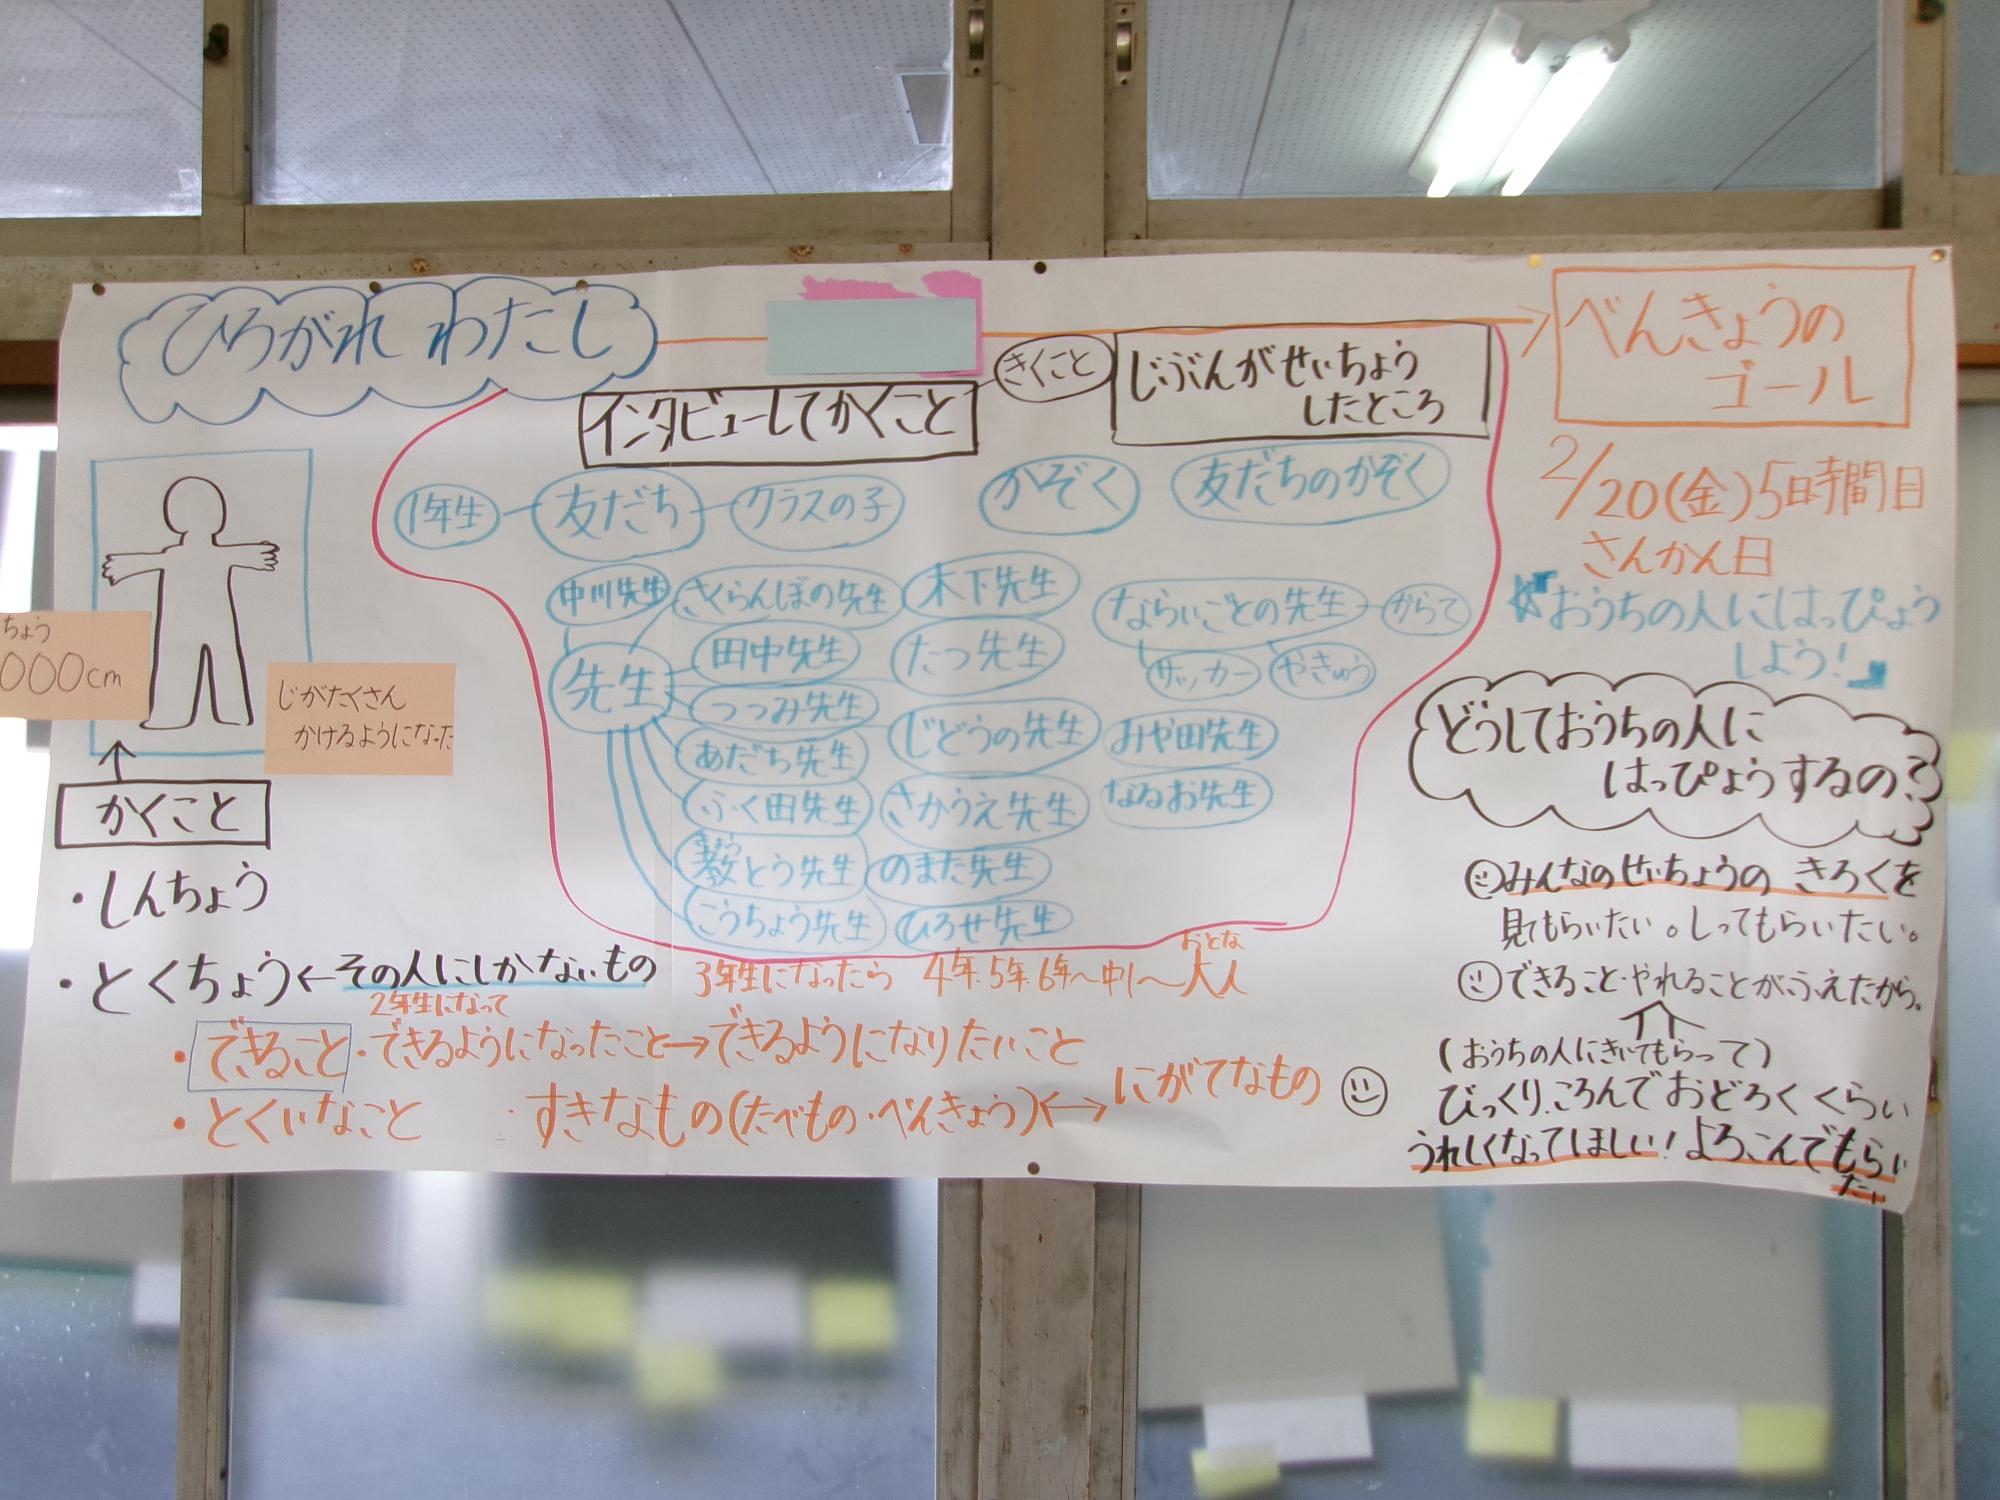 ひろがれ わたし
インタビューしてかくこと
きくこと
じぶんがせいちょう
したところ
べんきょうの
ゴール
1年生
友だち
クラスの子
かぞく
友だちのかぞく
中川先生
さくらんぼの先生
木下先生
ならいごとの先生
からて
サッカー
やきゅう
先生
田中先生
たつ先生
つつみ先生
じどうの先生
みや田先生
あだち先生
ふく田先生
さかうえ先生
なおお先生
きょう
教とう先生
のまた先生
こうちょう先生
ひろせ先生
2/20(金)5時間目
さんかん日
☆おうちの人にはっぴょう
しよう!
どうしておうちの人に
はっぴょうするの?
みんなのせいちょうの きろくを
見てもらいたい。しってもらいたい。
できること・やれることがふえたから。
(おうちの人にきいてもらって)
びっくり、ころんでおどろくくらい
うれしくなってほしい! よろこんでもらい
たい
ちょう
000cm
じがたくさん
かけるようになった
かくこと
・しんちょう
・とくちょう←その人にしかないもの
2年生になって
3年生になったら 4年.5年.6年〜中1〜大人
おとな
・できること・できるようになったこと→できるようになりたいこと
・とくいなこと ・すきなもの(たべもの・べんきょう)↔にがてなもの